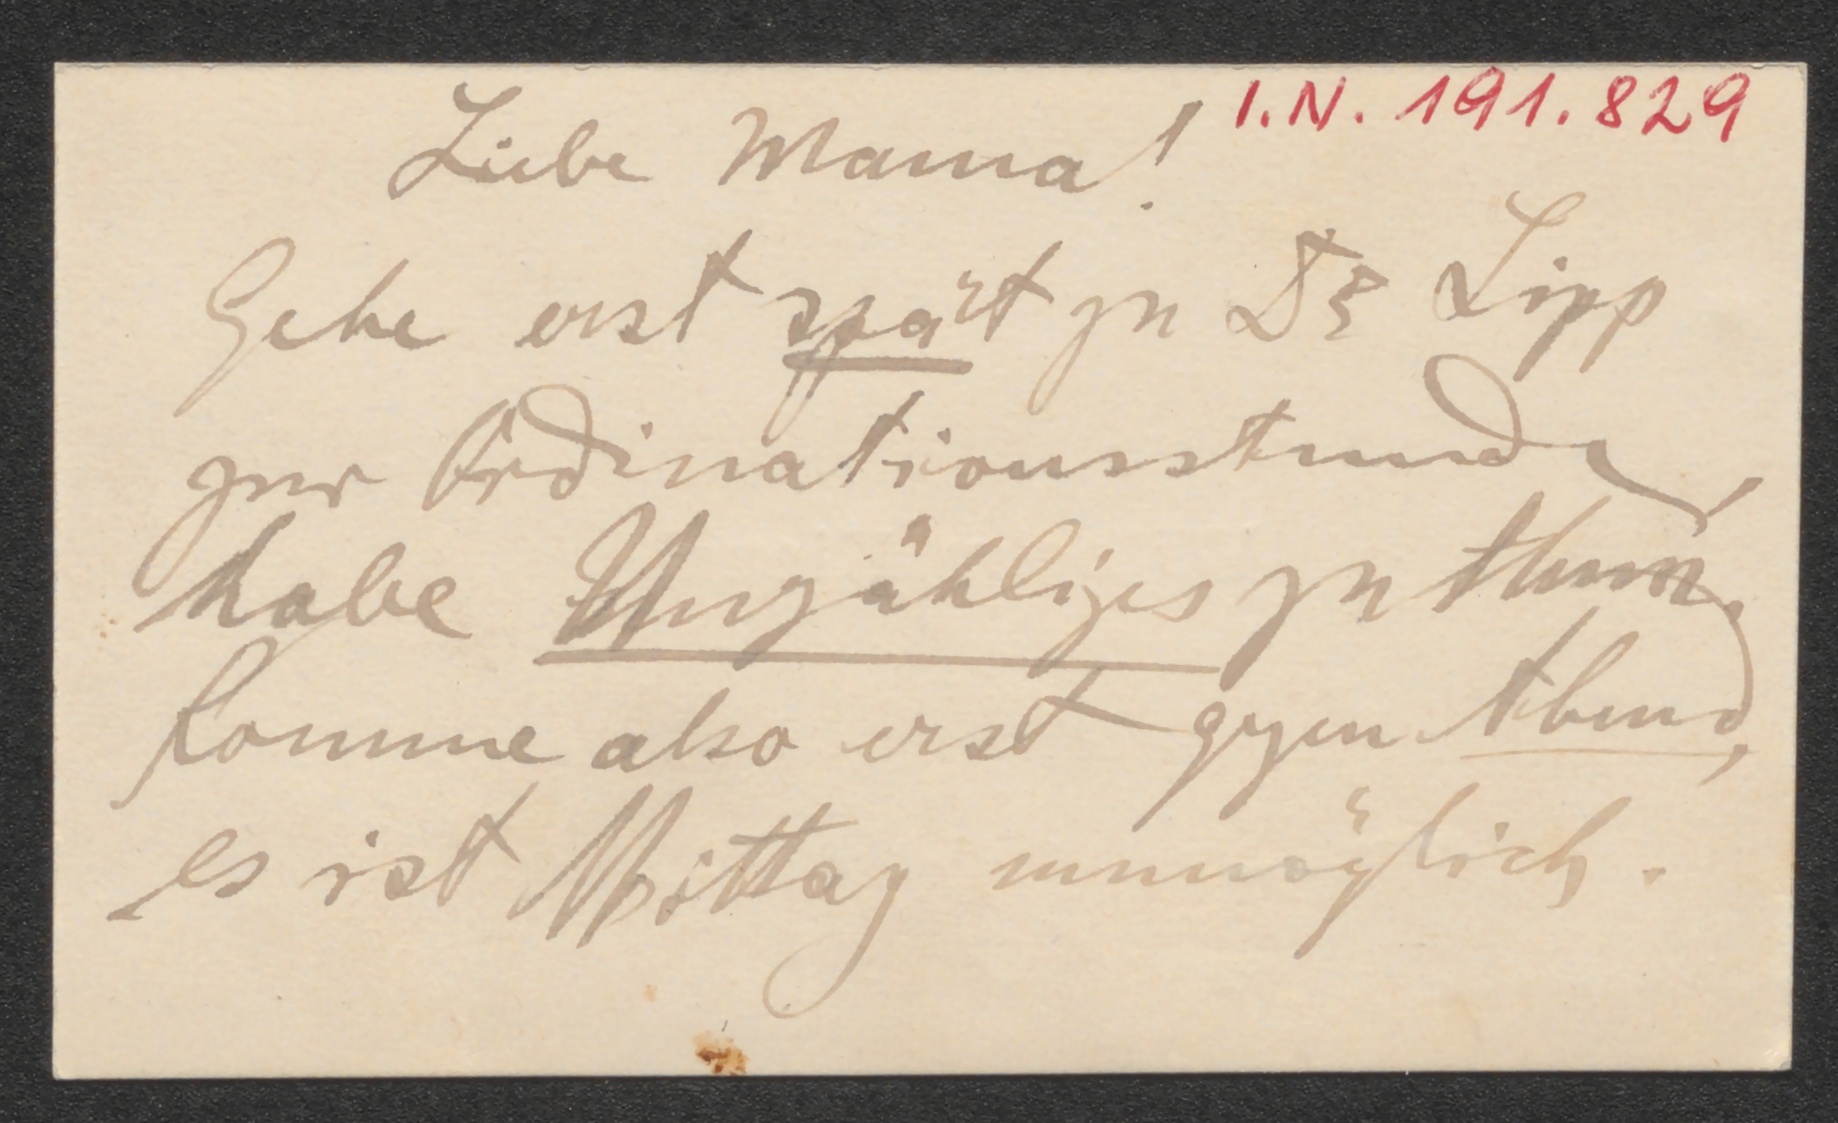 I.N. 191.829
Liebe Mama!
Gehe erst spät zu Dr Lipp
zur Ordinationsstunde,
habe Unzähliges zu thun,
komme also erst gegen Abend,
es ist Mittag unmöglich.